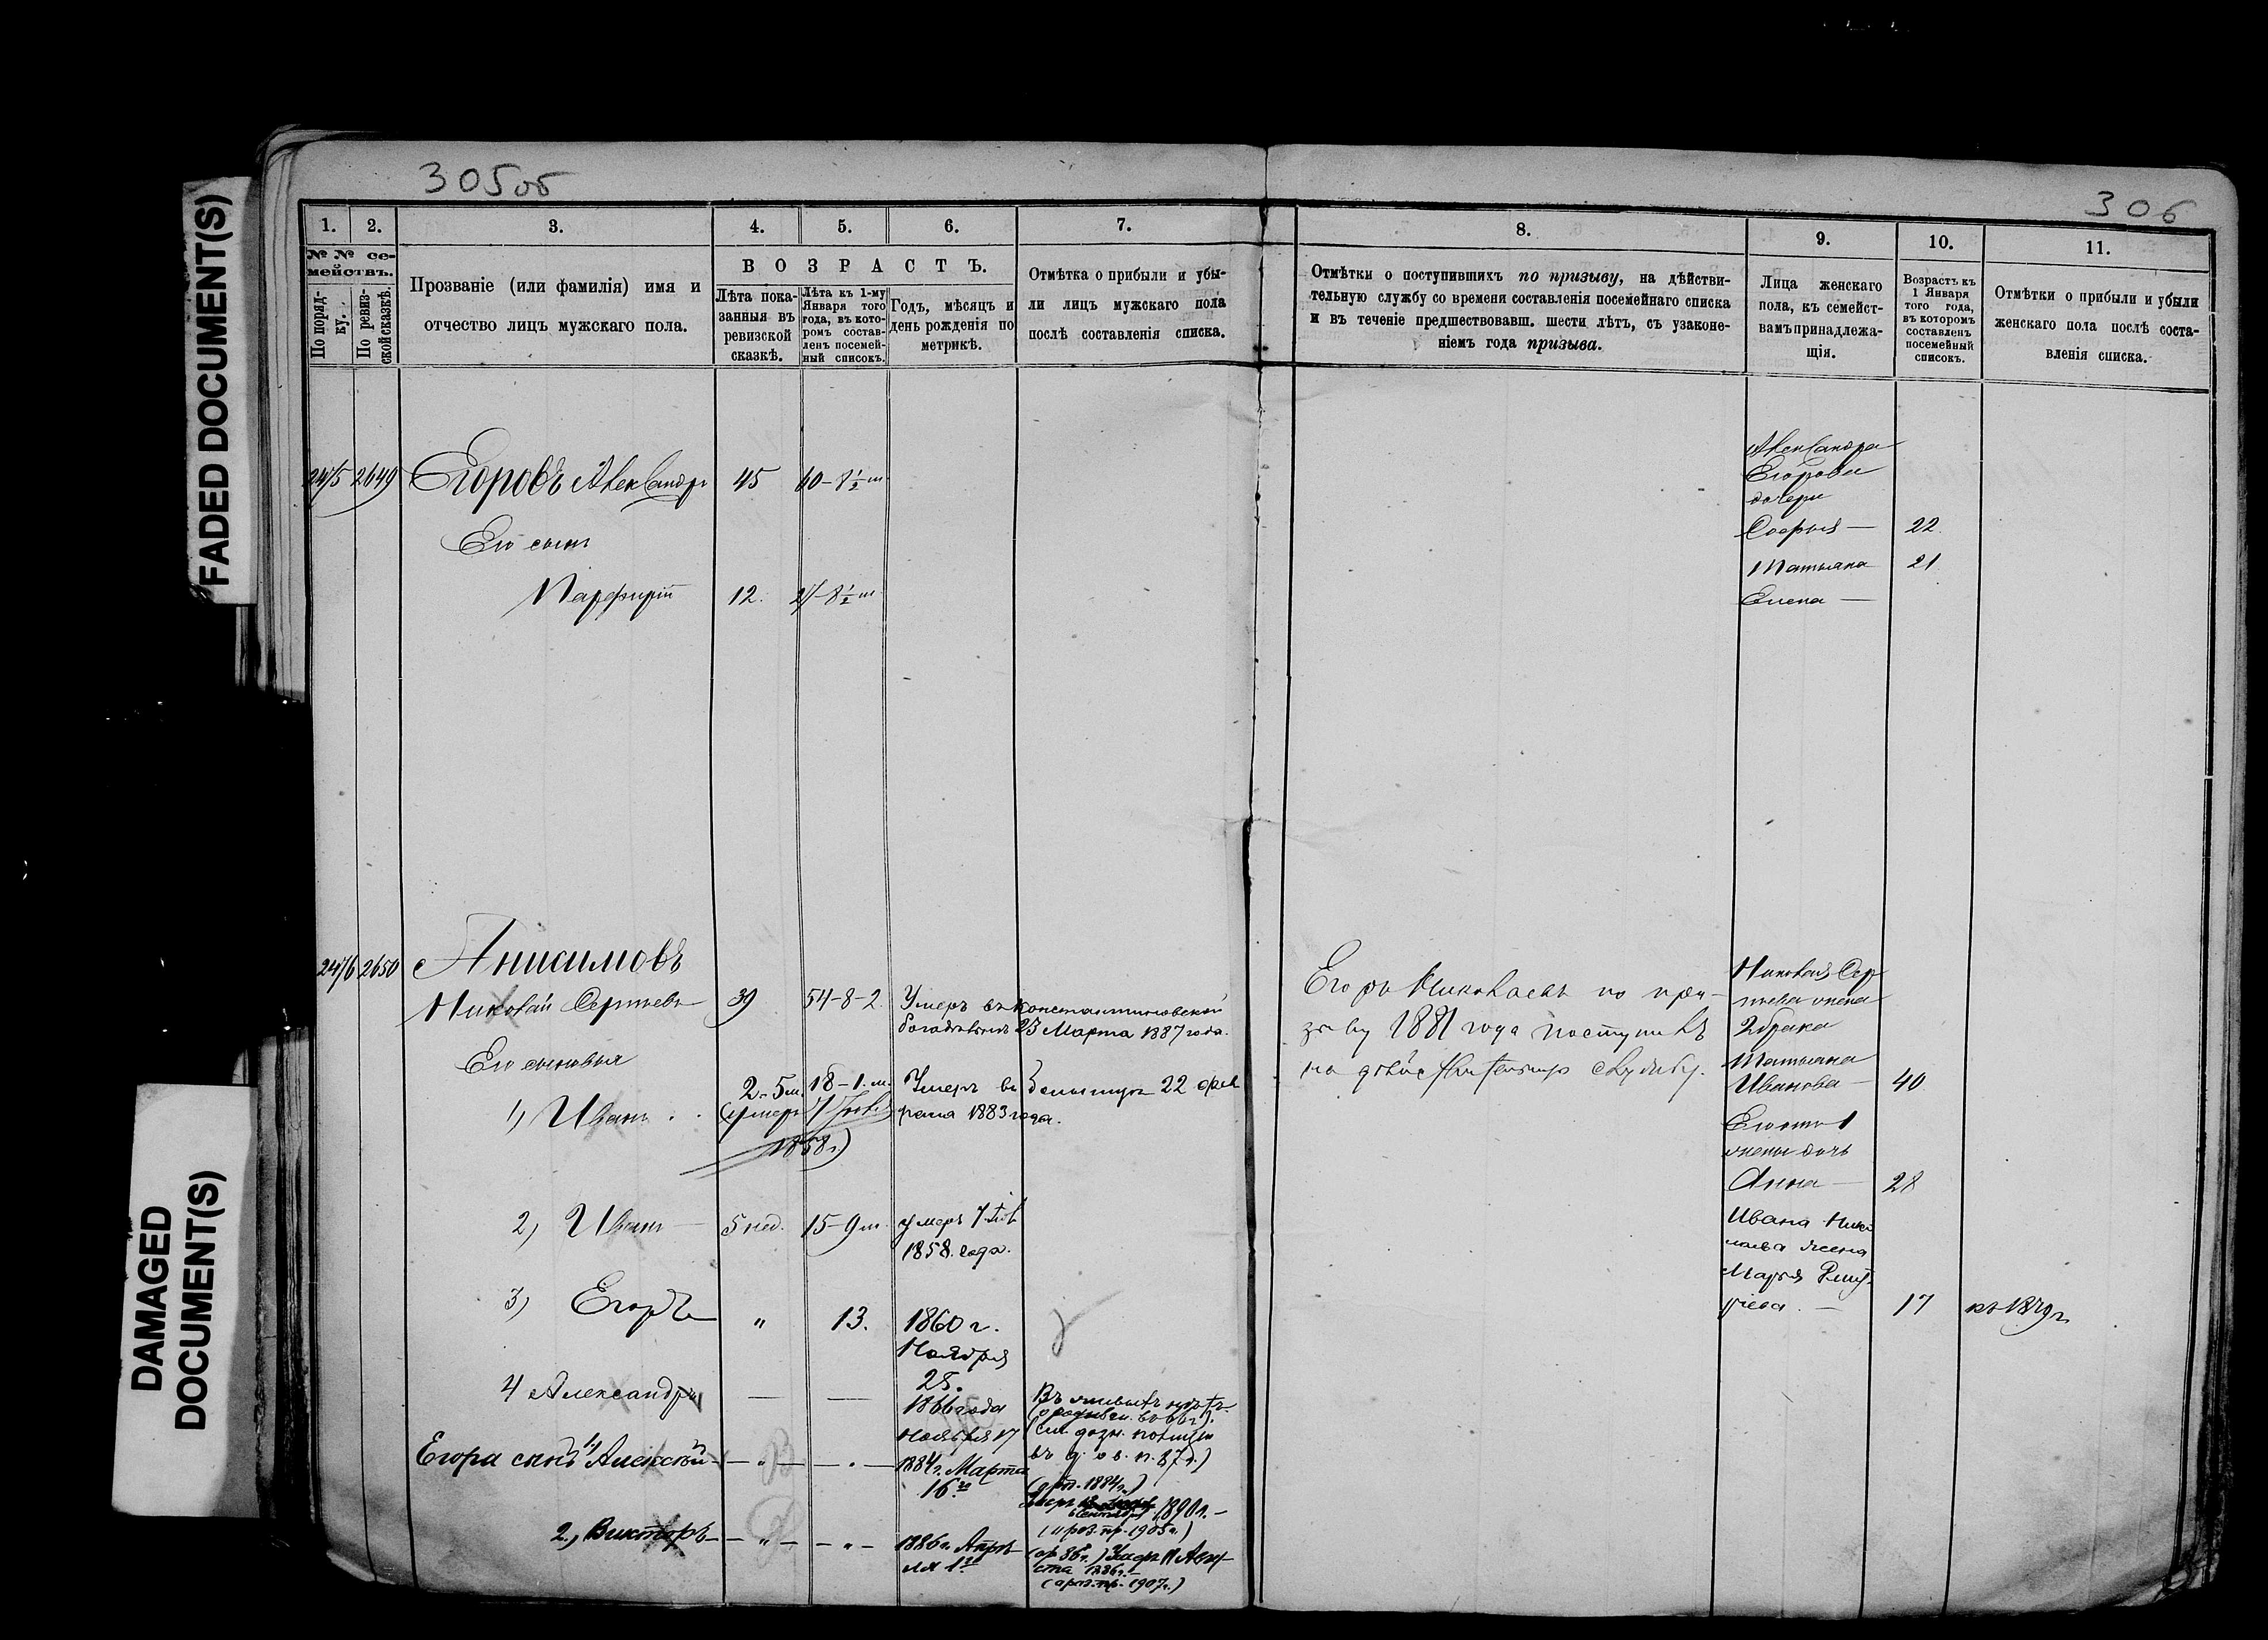 FADED DOCUMENT(S)
DAMAGED
DOCUMENT(S)
305об
306
1. 2. 3. 4. 5. 6. 7.
№ № се-
мействъ.
По поряд-
ку.
По ревиз-
ской сказкѣ.
Прозваніе (или фамилія) имя и
отчество лицъ мужскаго пола.
ВОЗРАСТЪ.
Лѣта пока-
занныя въ
ревизской
сказкѣ.
Лѣта къ 1-му
Января того
года, въ кото-
ромъ состав-
ленъ посемей-
ный списокъ.
Годъ, мѣсяцъ и
день рожденія по
метрикѣ.
Отмѣтка о прибыли и убы-
ли лицъ мужскаго пола
послѣ составленія списка.
8. 9. 10. 11.
Отмѣтки о поступившихъ по призыву, на дѣйстви-
тельную службу со времени составленія посемейнаго списка
и въ теченіе предшествовавш. шести лѣтъ, съ узаконе-
ніемъ года призыва.
Лица женскаго
пола, къ семейст-
вамъ принадлежа-
щія.
Возрастъ къ
1 Января
того года,
въ которомъ
составленъ
посемейный
списокъ.
Отмѣтки о прибыли и убыли
женскаго пола послѣ соста-
вленія списка.
2475 2649 Егоровъ Александръ 45 60-8½ м
Его сынъ
Парфирій 12. 27-8½ м
Александра
Егорова
дочери
Софья — 22.
Татьяна 21
Елена —
2476 2650 Анисимовъ
Николай Сергѣевъ 39 54-8-2. Умеръ въ Константиновской
богадѣльнѣ 23 Марта 1887 года.
Его сыновья
1) Иванъ 2-5 м. 18-1.м. Умеръ въ 22 фев
(умеръ 7 1858г.) раля 1883 года.
2) Иванъ — 5 нед. 15-9 м. умеръ 7
1858 года.
3) Егоръ " 13. 1860 г.
Ноября
25.
4 Александръ — — 1866 года
Ноября 17
Въ
Егора сынъ 1) Алексѣй — " — — " — 1884 г. Марта
16го
(1884г.)
Умеръ 1890 г. —
(1905г.)
2) Викторъ — " — — " — 1886 г. Апрѣ-
ля 1го
Умеръ 11 Авгу-
ста 1886г.
(1907г.)
Егоръ Николаевъ по при-
зыву 1881 года поступилъ
на дѣйствительную службу.
Николая Сер
гѣева жена
2 брака
Татьяна
Иванова — 40
Его отъ 1
жены дочь
Анна — 28
Ивана Нико
лаева жена
Марья
17 въ 1879 г.